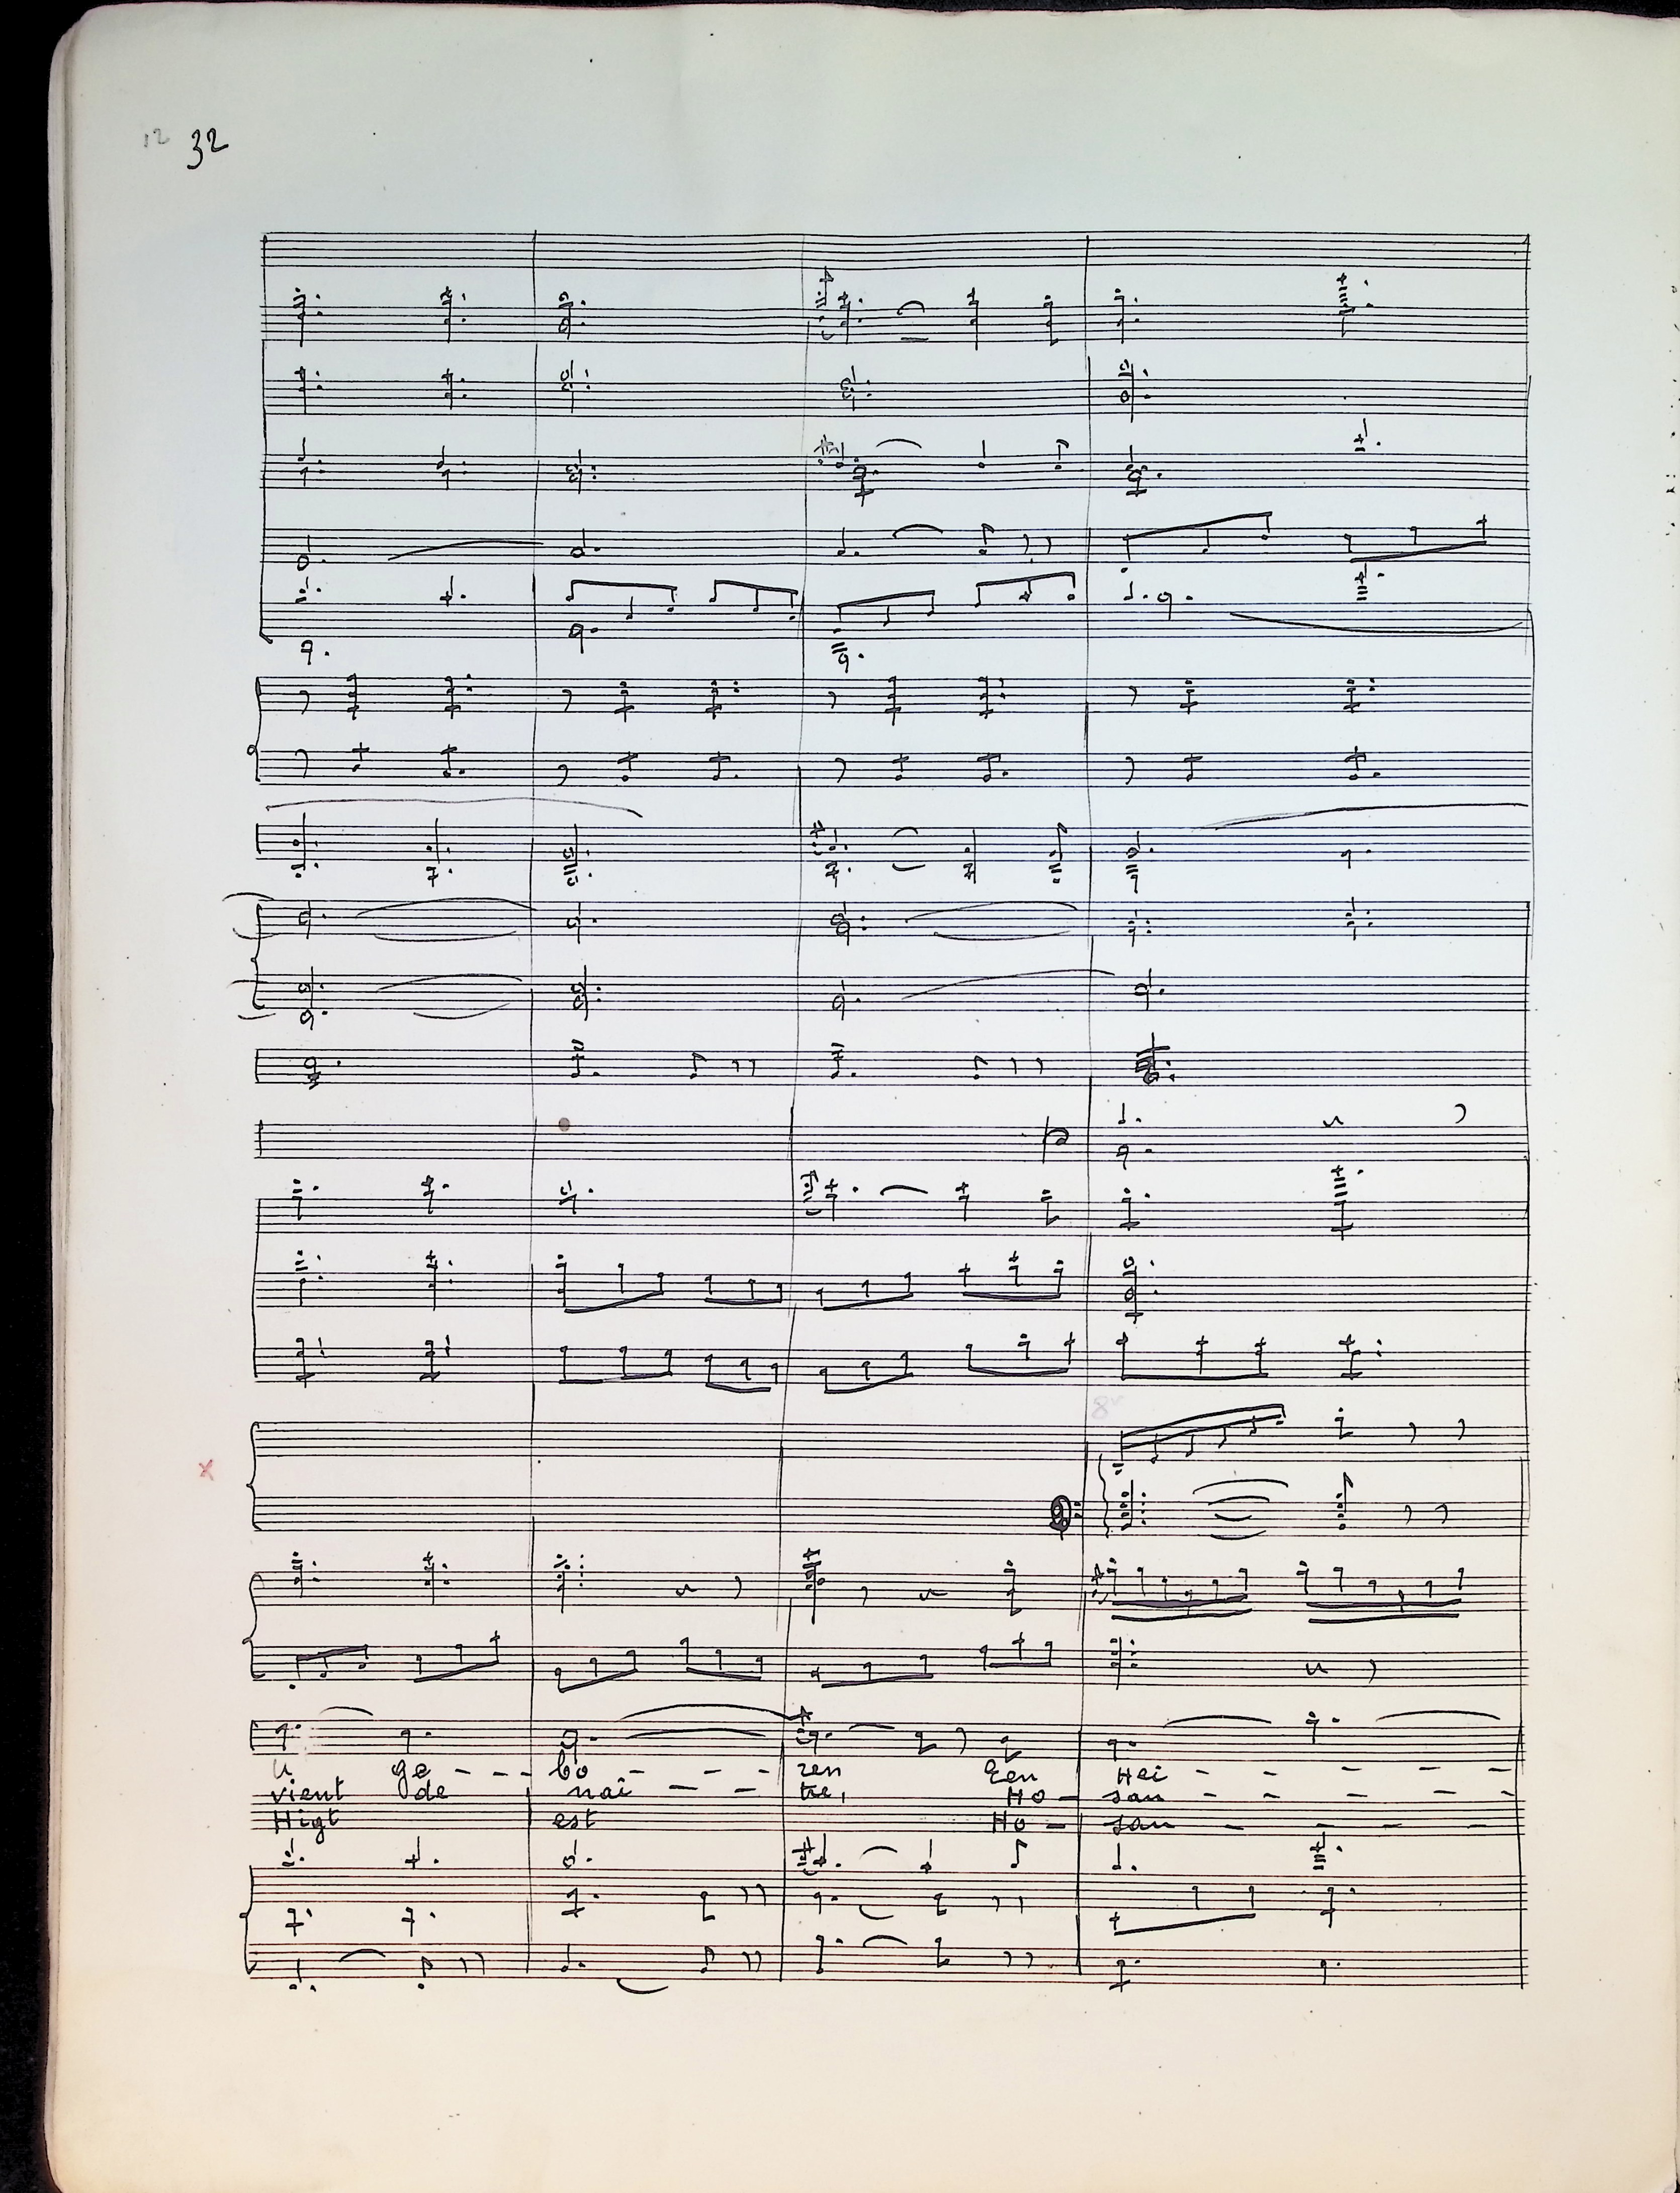 12 32
8
u ge - - - bo - - - ren Een Hei - - - - -
vient de naî - - - tre, Ho - san - - - - -
est Ho - san - - - -